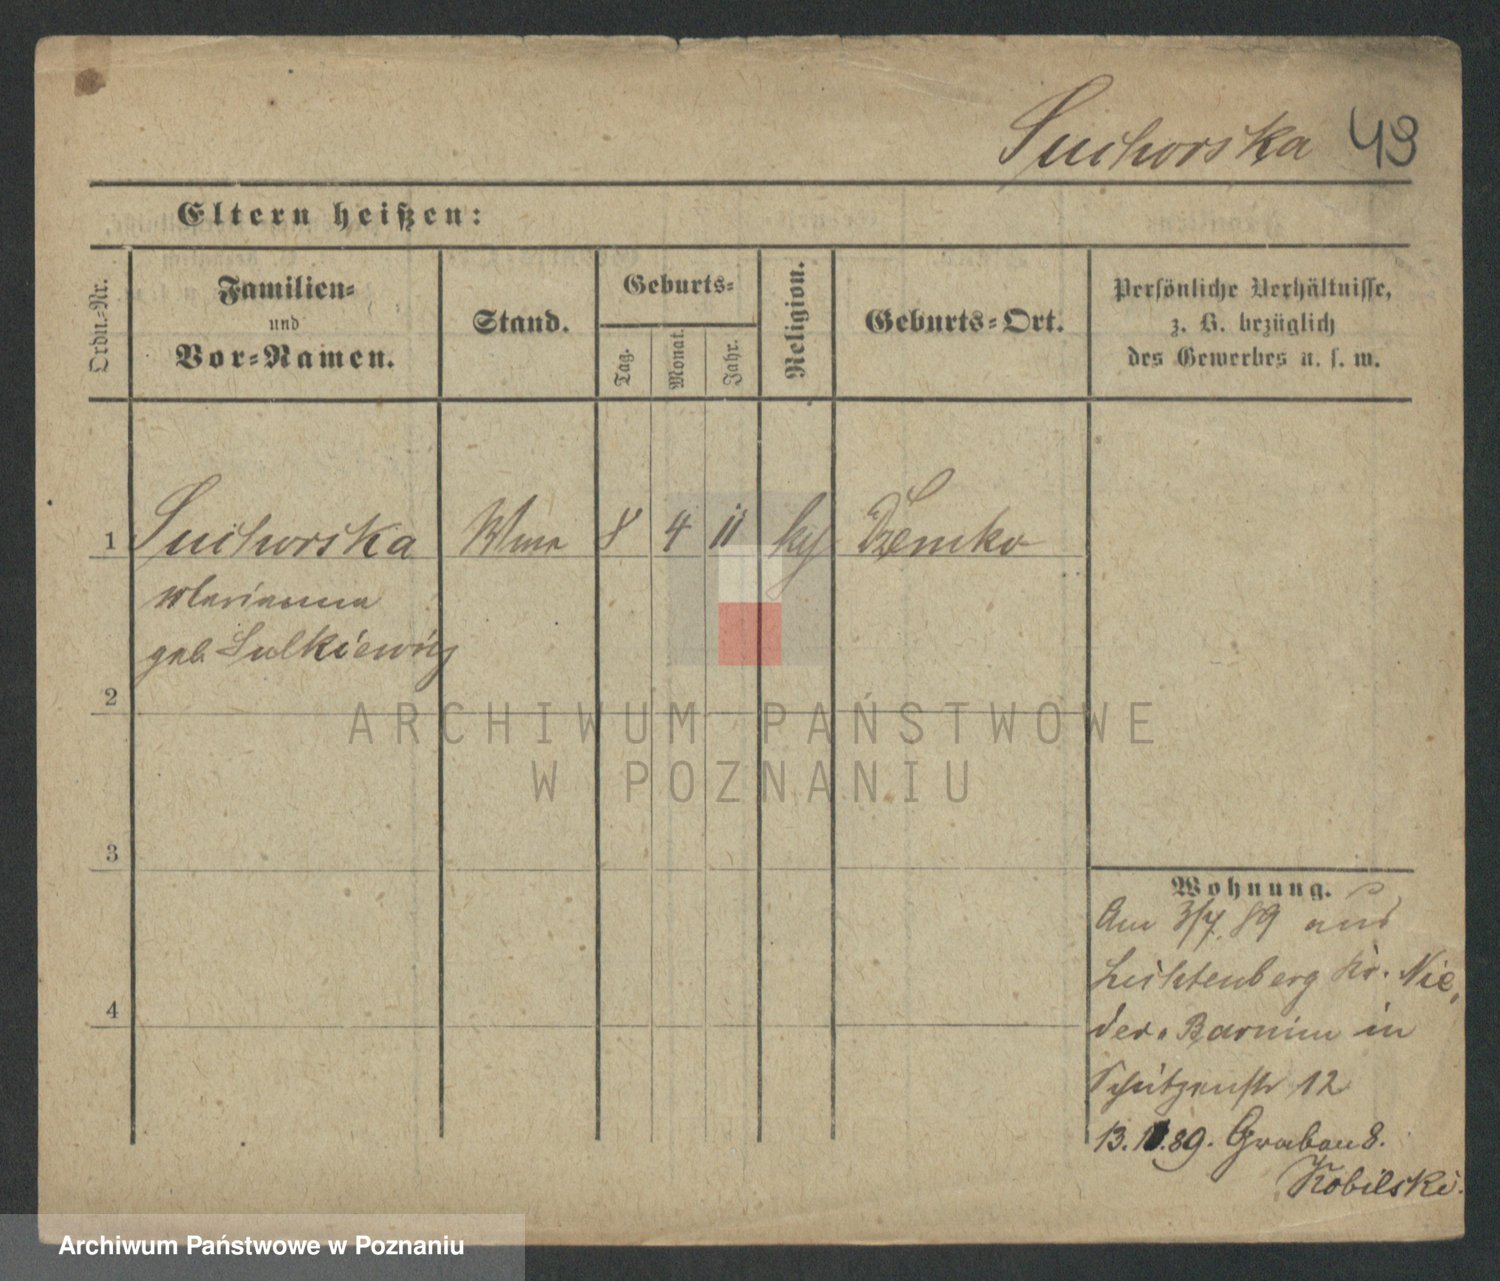 Suchorska 43
Eltern heißen:
Ordn.-Nr.
Familien-
und
Vor-Namen.
Stand.
Geburts-
Tag.
Monat.
Jahr.
Religion.
Geburts-Ort.
Persönliche Verhältnisse,
z. B. bezüglich
des Gewerbes u. s. w.
1 Suchorska Wwe 8 4 11
Marianna
geb. Sulkiewicz
2
3
4
Wohnung.
Am 3/7. 89 aus
Lichtenberg Kr. Nie,
der. Barnim in
Schützenstr 12
89. Graben 8.
Kobilski.
ARCHIWUM PAŃSTWOWE
W POZNANIU
Archiwum Państwowe w Poznaniu